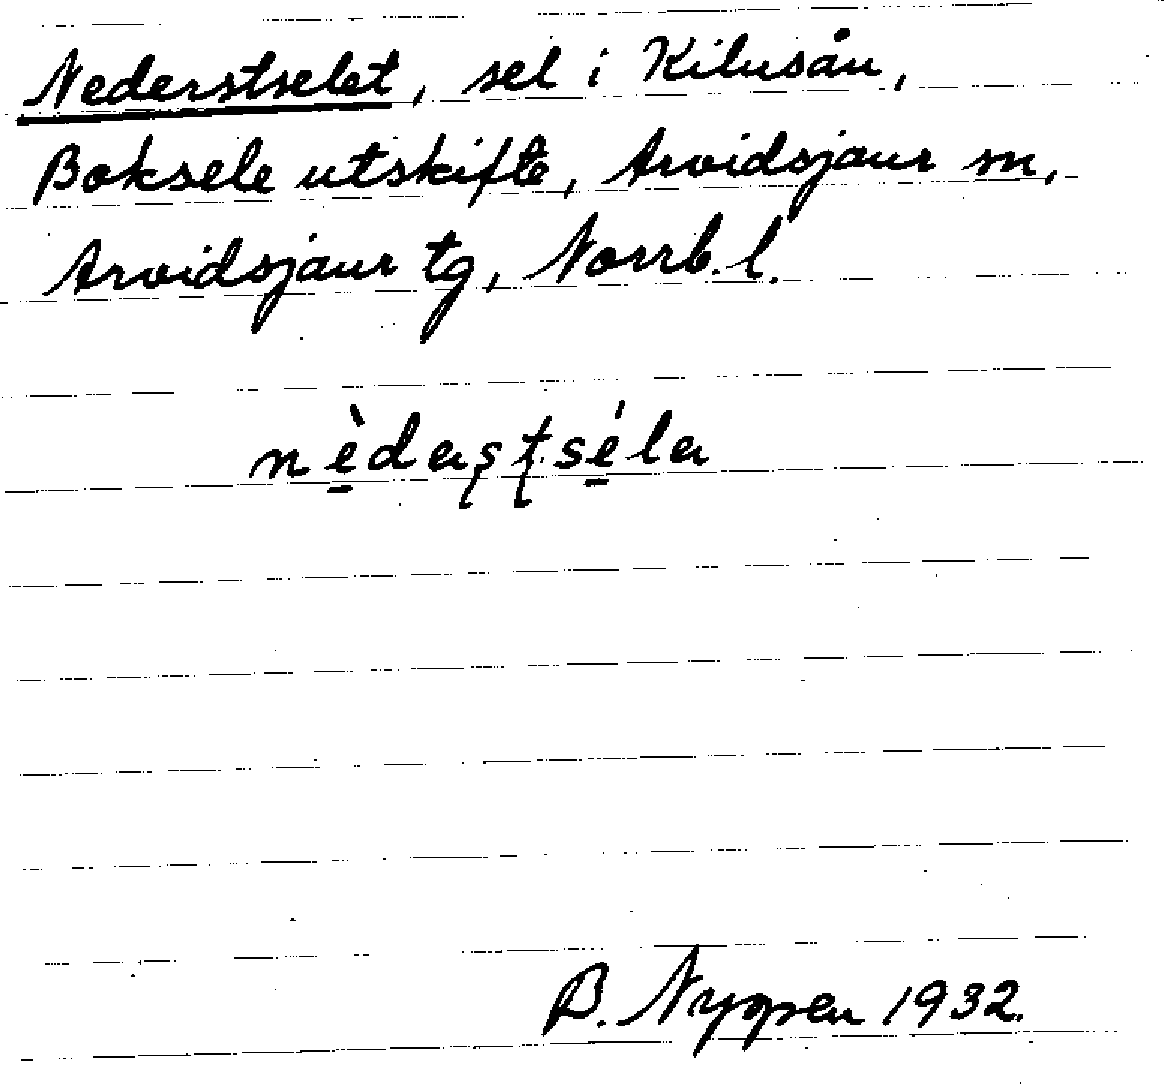 Nederstselet, sel i Kilusån,
Boksele utskifte, Arvidsjaur sn,
Arvidsjaur tg, Norrb. l.
nè̱daşţsé̱la
B. Nygren 1932.